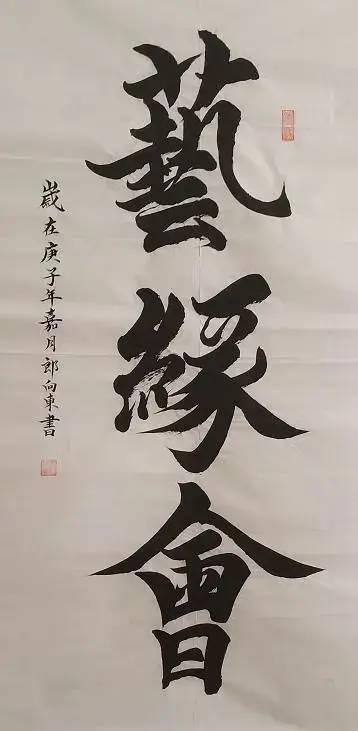 藝緣會
歲在庚子年嘉月郎向東書